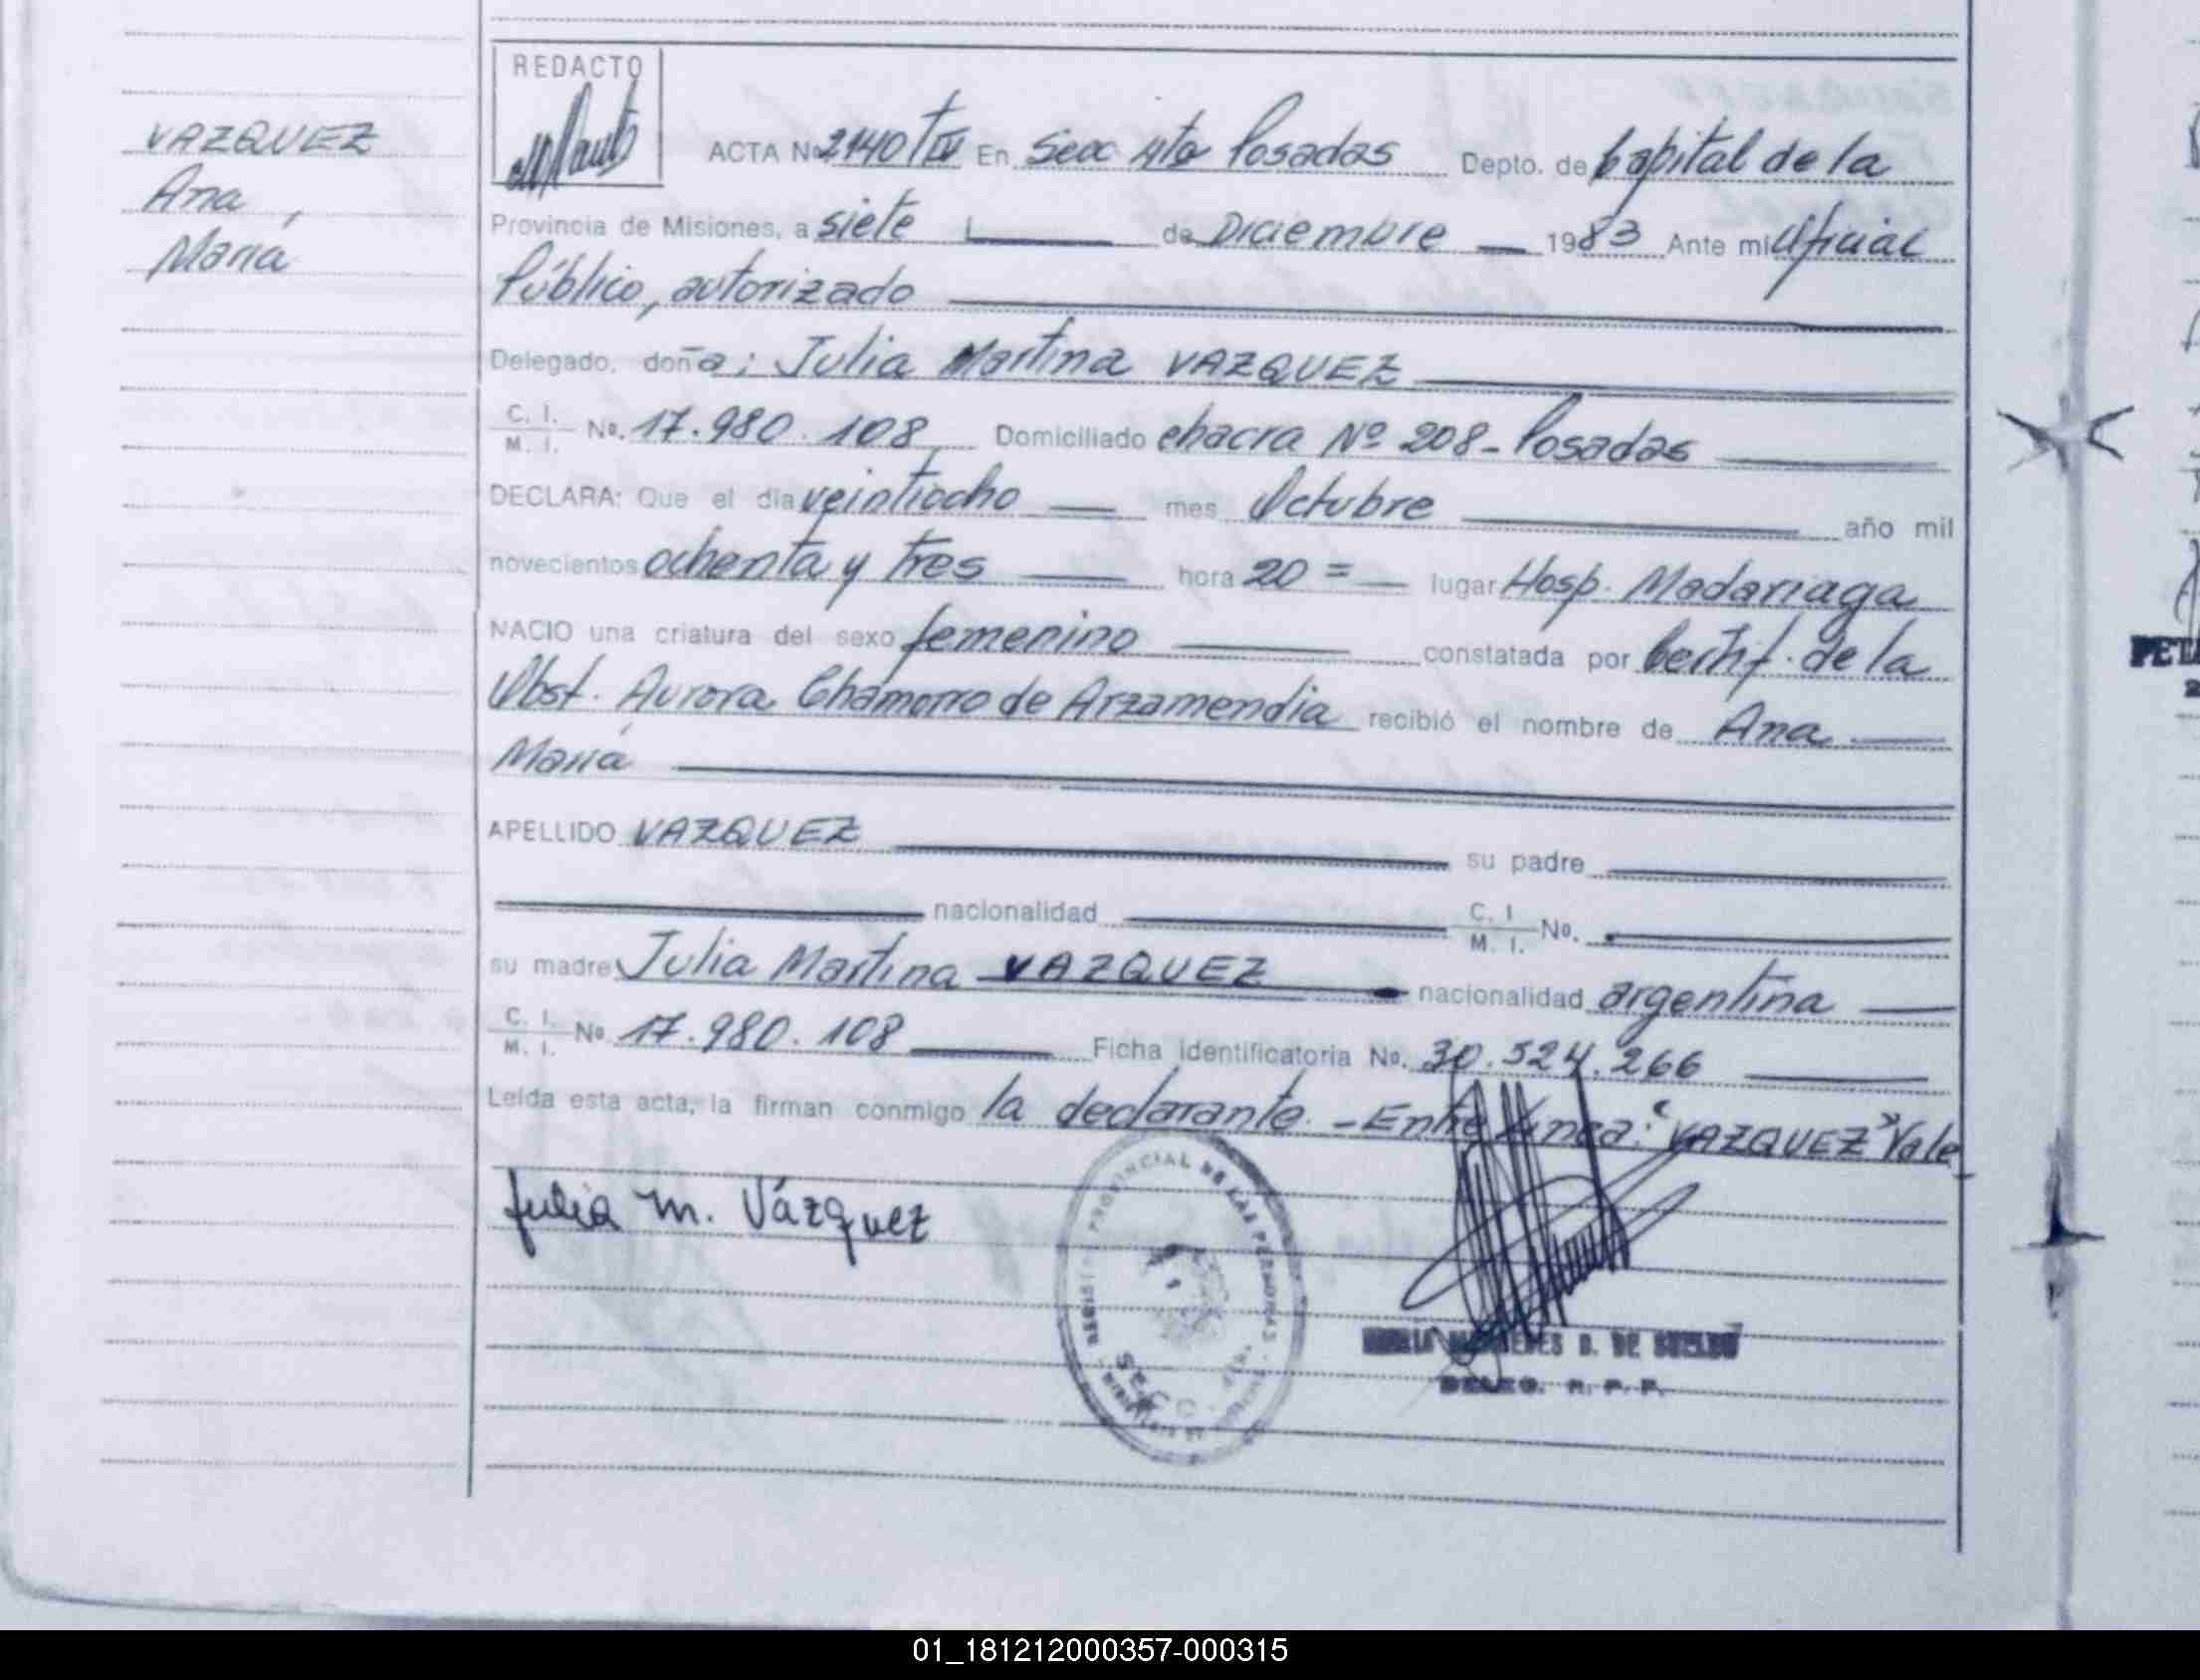 VAZQUEZ
Ana,
María
REDACTO
ACTA No 2140 TIV En Secc 4ta Posadas Depto. de Capital de la
Provincia de Misiones, a siete de Diciembre 1983 Ante mi Oficial
Público, autorizado
Delegado, doña: Julia Martina VAZQUEZ
C. I. M. I. No. 17.980.108 Domiciliado chacra Nº 208 - Posadas
DECLARA: Que el dia veintiocho mes Octubre año mil
novecientos ochenta y tres hora 20 = lugar Hosp. Madariaga
NACIO una criatura del sexo femenino constatada por Certif. de la
Obst. Aurora Chamorro de Arzamendia recibió el nombre de Ana
María
APELLIDO VAZQUEZ su padre
nacionalidad C. I M. I. No.
su madre Julia Martina VAZQUEZ nacionalidad argentina
C. I. M. I. No 17.980.108 Ficha identificatoria No. 30.524.266
Leída esta acta, la firman conmigo la declarante. - Entre linea: "VAZQUEZ" Vale
Julia M. Vázquez
PROVINCIAL DE LAS PERSONAS
D. DE
DELEG. R. P. P.
01_181212000357-000315